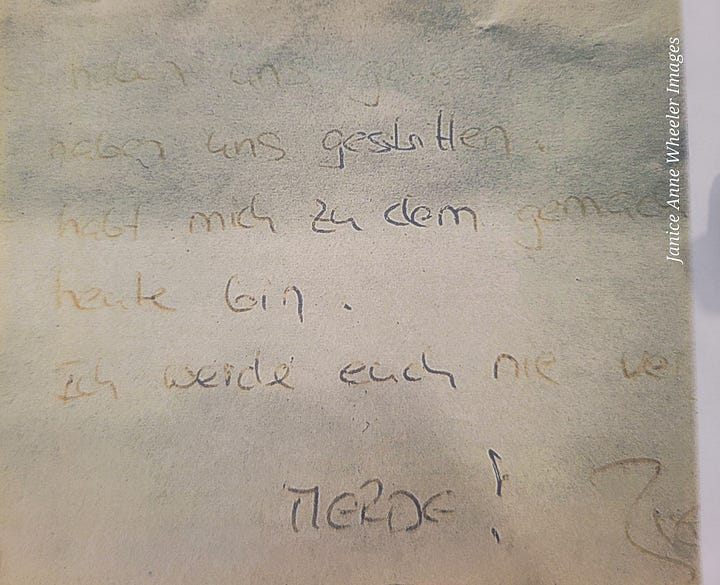 haben uns
haben uns gestritten.
habt mich zu dem
heute bin.
Ich werde euch nie
MERDE!
Janice Anne Wheeler Images